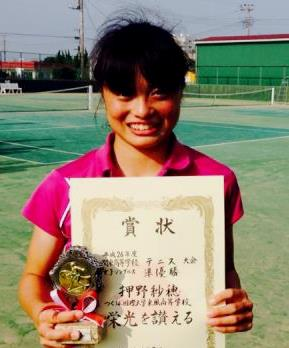 賞状
平成26年度
関東高等学校 テニス 大会
女子シングルス 準優勝
押野紗穂
つくば国際大学東風高等学校
栄光を讃える